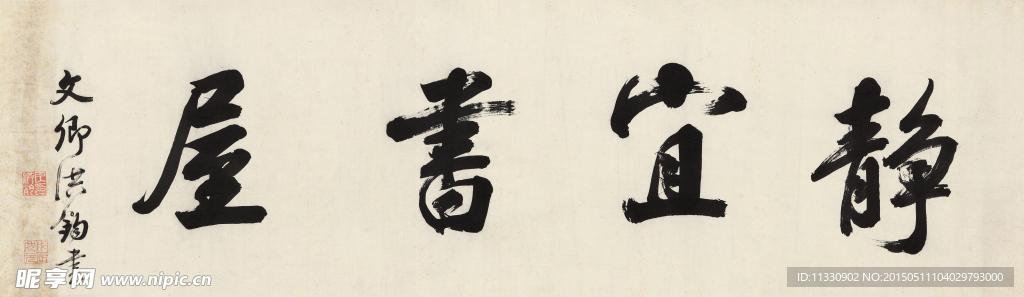 靜宜書屋
文卿洪鈞書
昵享网 www.nipic.cn
ID:11330902 NO:20150511104029793000